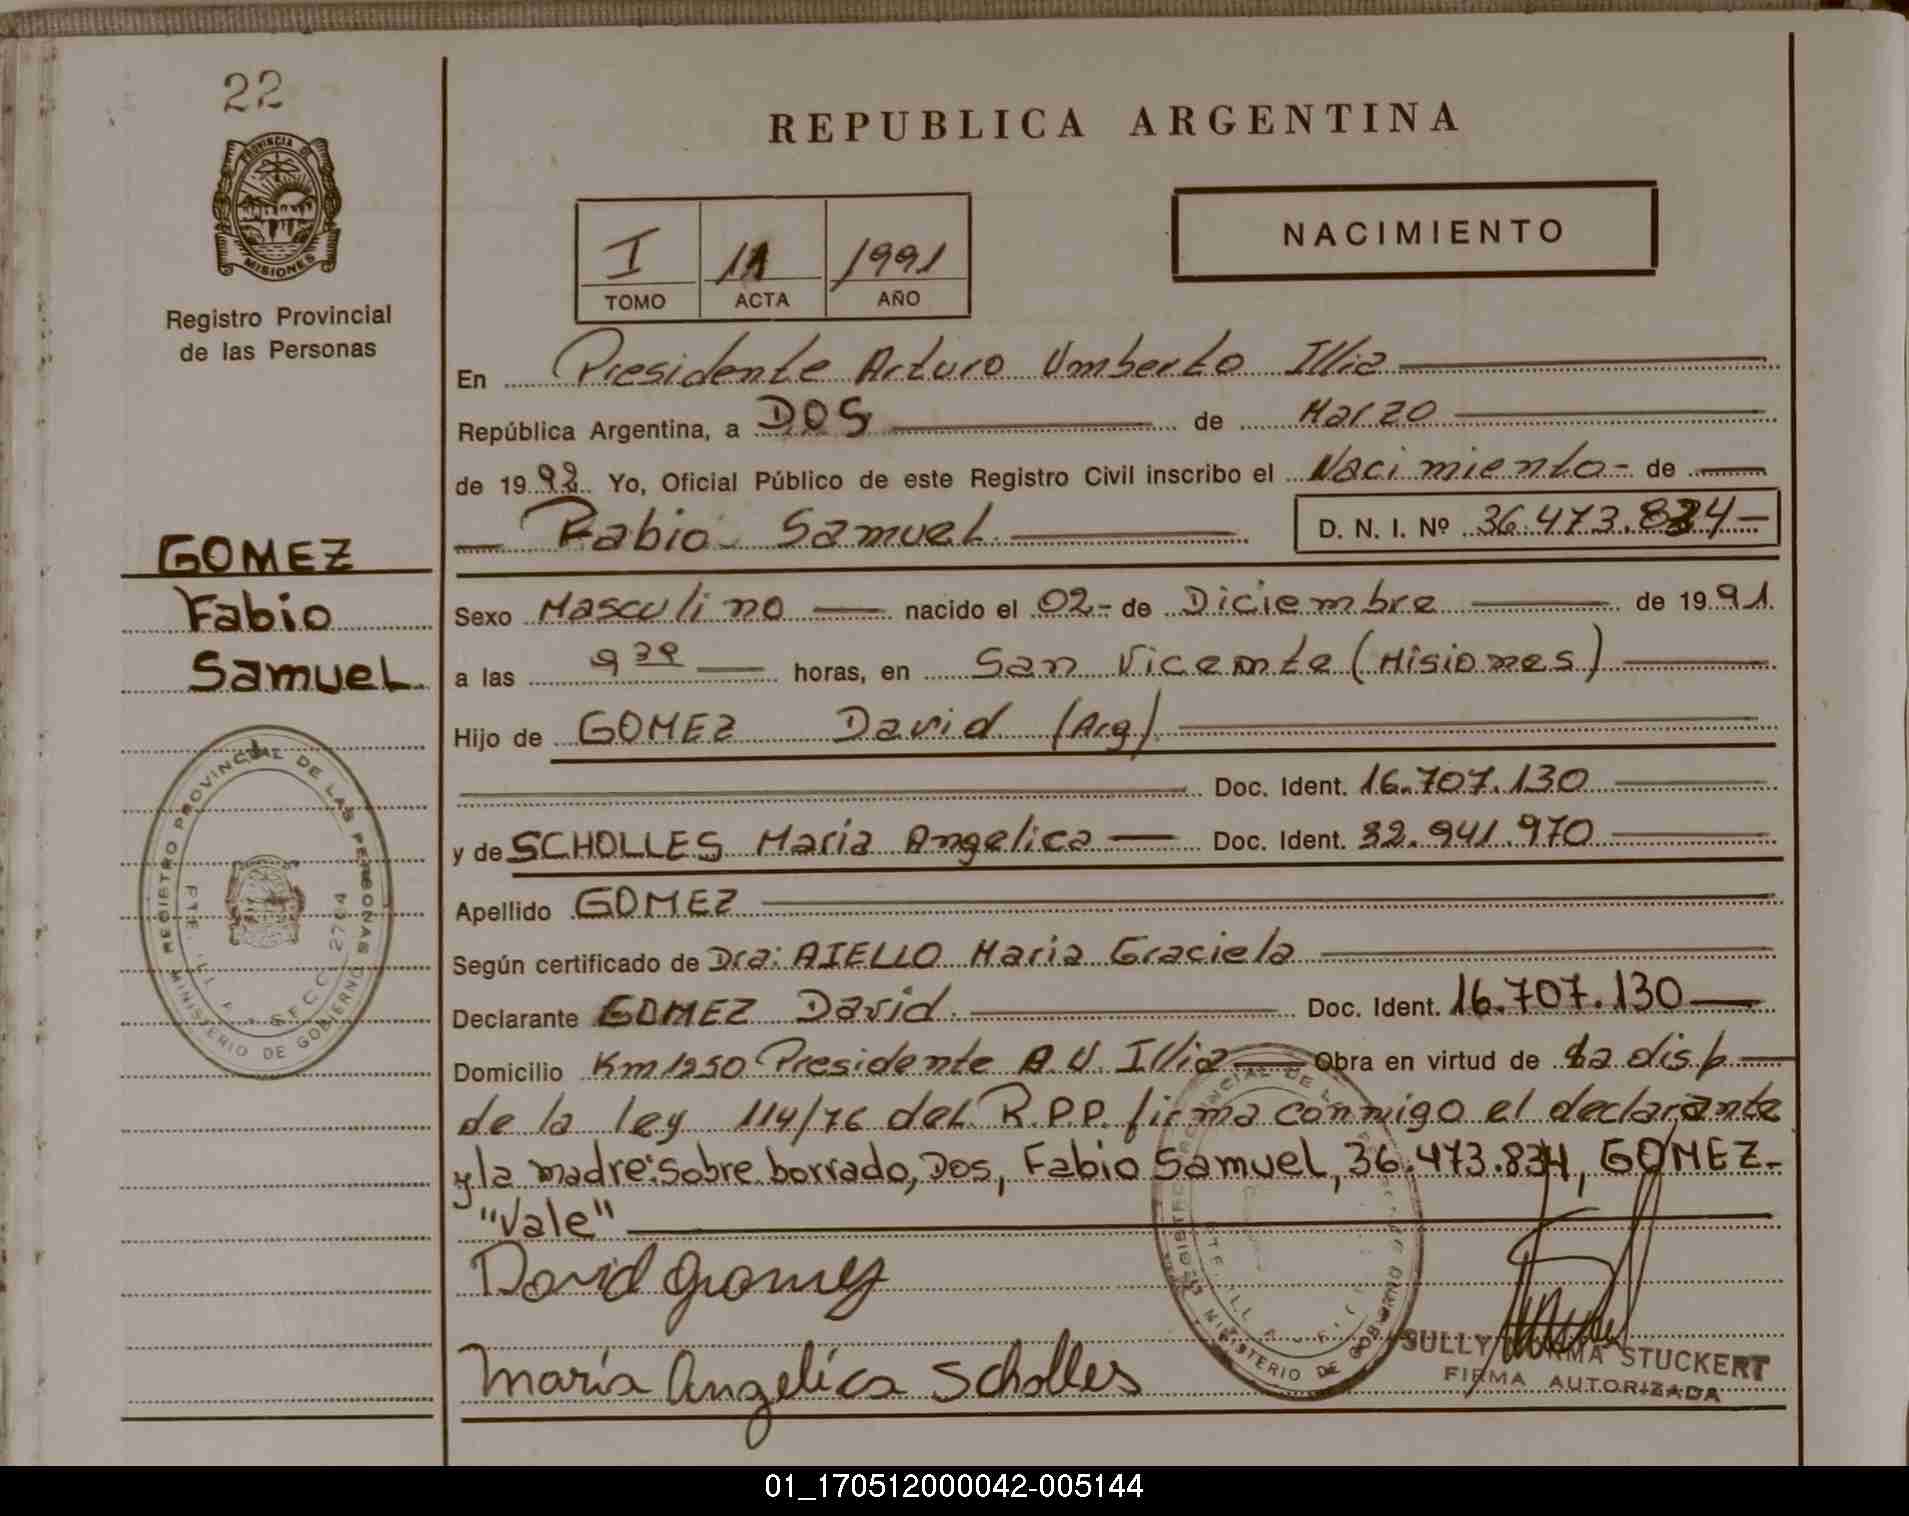 22
PROVINCIA DE
MISIONES
Registro Provincial
de las Personas
GOMEZ
Fabio
Samuel
REGISTRO PROVINCIAL DE LAS PERSONAS
MINISTERIO DE GOBIERNO
SECC 2704
REPUBLICA ARGENTINA
I 11 1991
TOMO ACTA AÑO
NACIMIENTO
En Presidente Arturo Umberto Illia
República Argentina, a DOS de Marzo
de 1992 Yo, Oficial Público de este Registro Civil inscribo el Nacimiento - de
Fabio Samuel D. N. I. Nº 36.473.834
Sexo Masculino nacido el 02 - de Diciembre de 1991
a las 9 30 horas, en San Vicente (Misiones)
Hijo de GOMEZ David (Arg)
Doc. Ident. 16.707.130
y de SCHOLLES Maria Angelica Doc. Ident. 32.941.970
Apellido GOMEZ
Según certificado de Dra: AIELLO Maria Graciela
Declarante GOMEZ David Doc. Ident. 16.707.130
Domicilio Km 1250 Presidente A. U. Illia Obra en virtud de la disp
de la ley 114/76 del R.P.P. firma conmigo el declarante
y la madre: sobre borrado, Dos, Fabio Samuel, 36.473.834, GOMEZ-
"Vale"
David Gomez
María Angelica Scholles
MINISTERIO DE GOBIERNO
SULLY STUCKERT
FIRMA AUTORIZADA
01_170512000042-005144